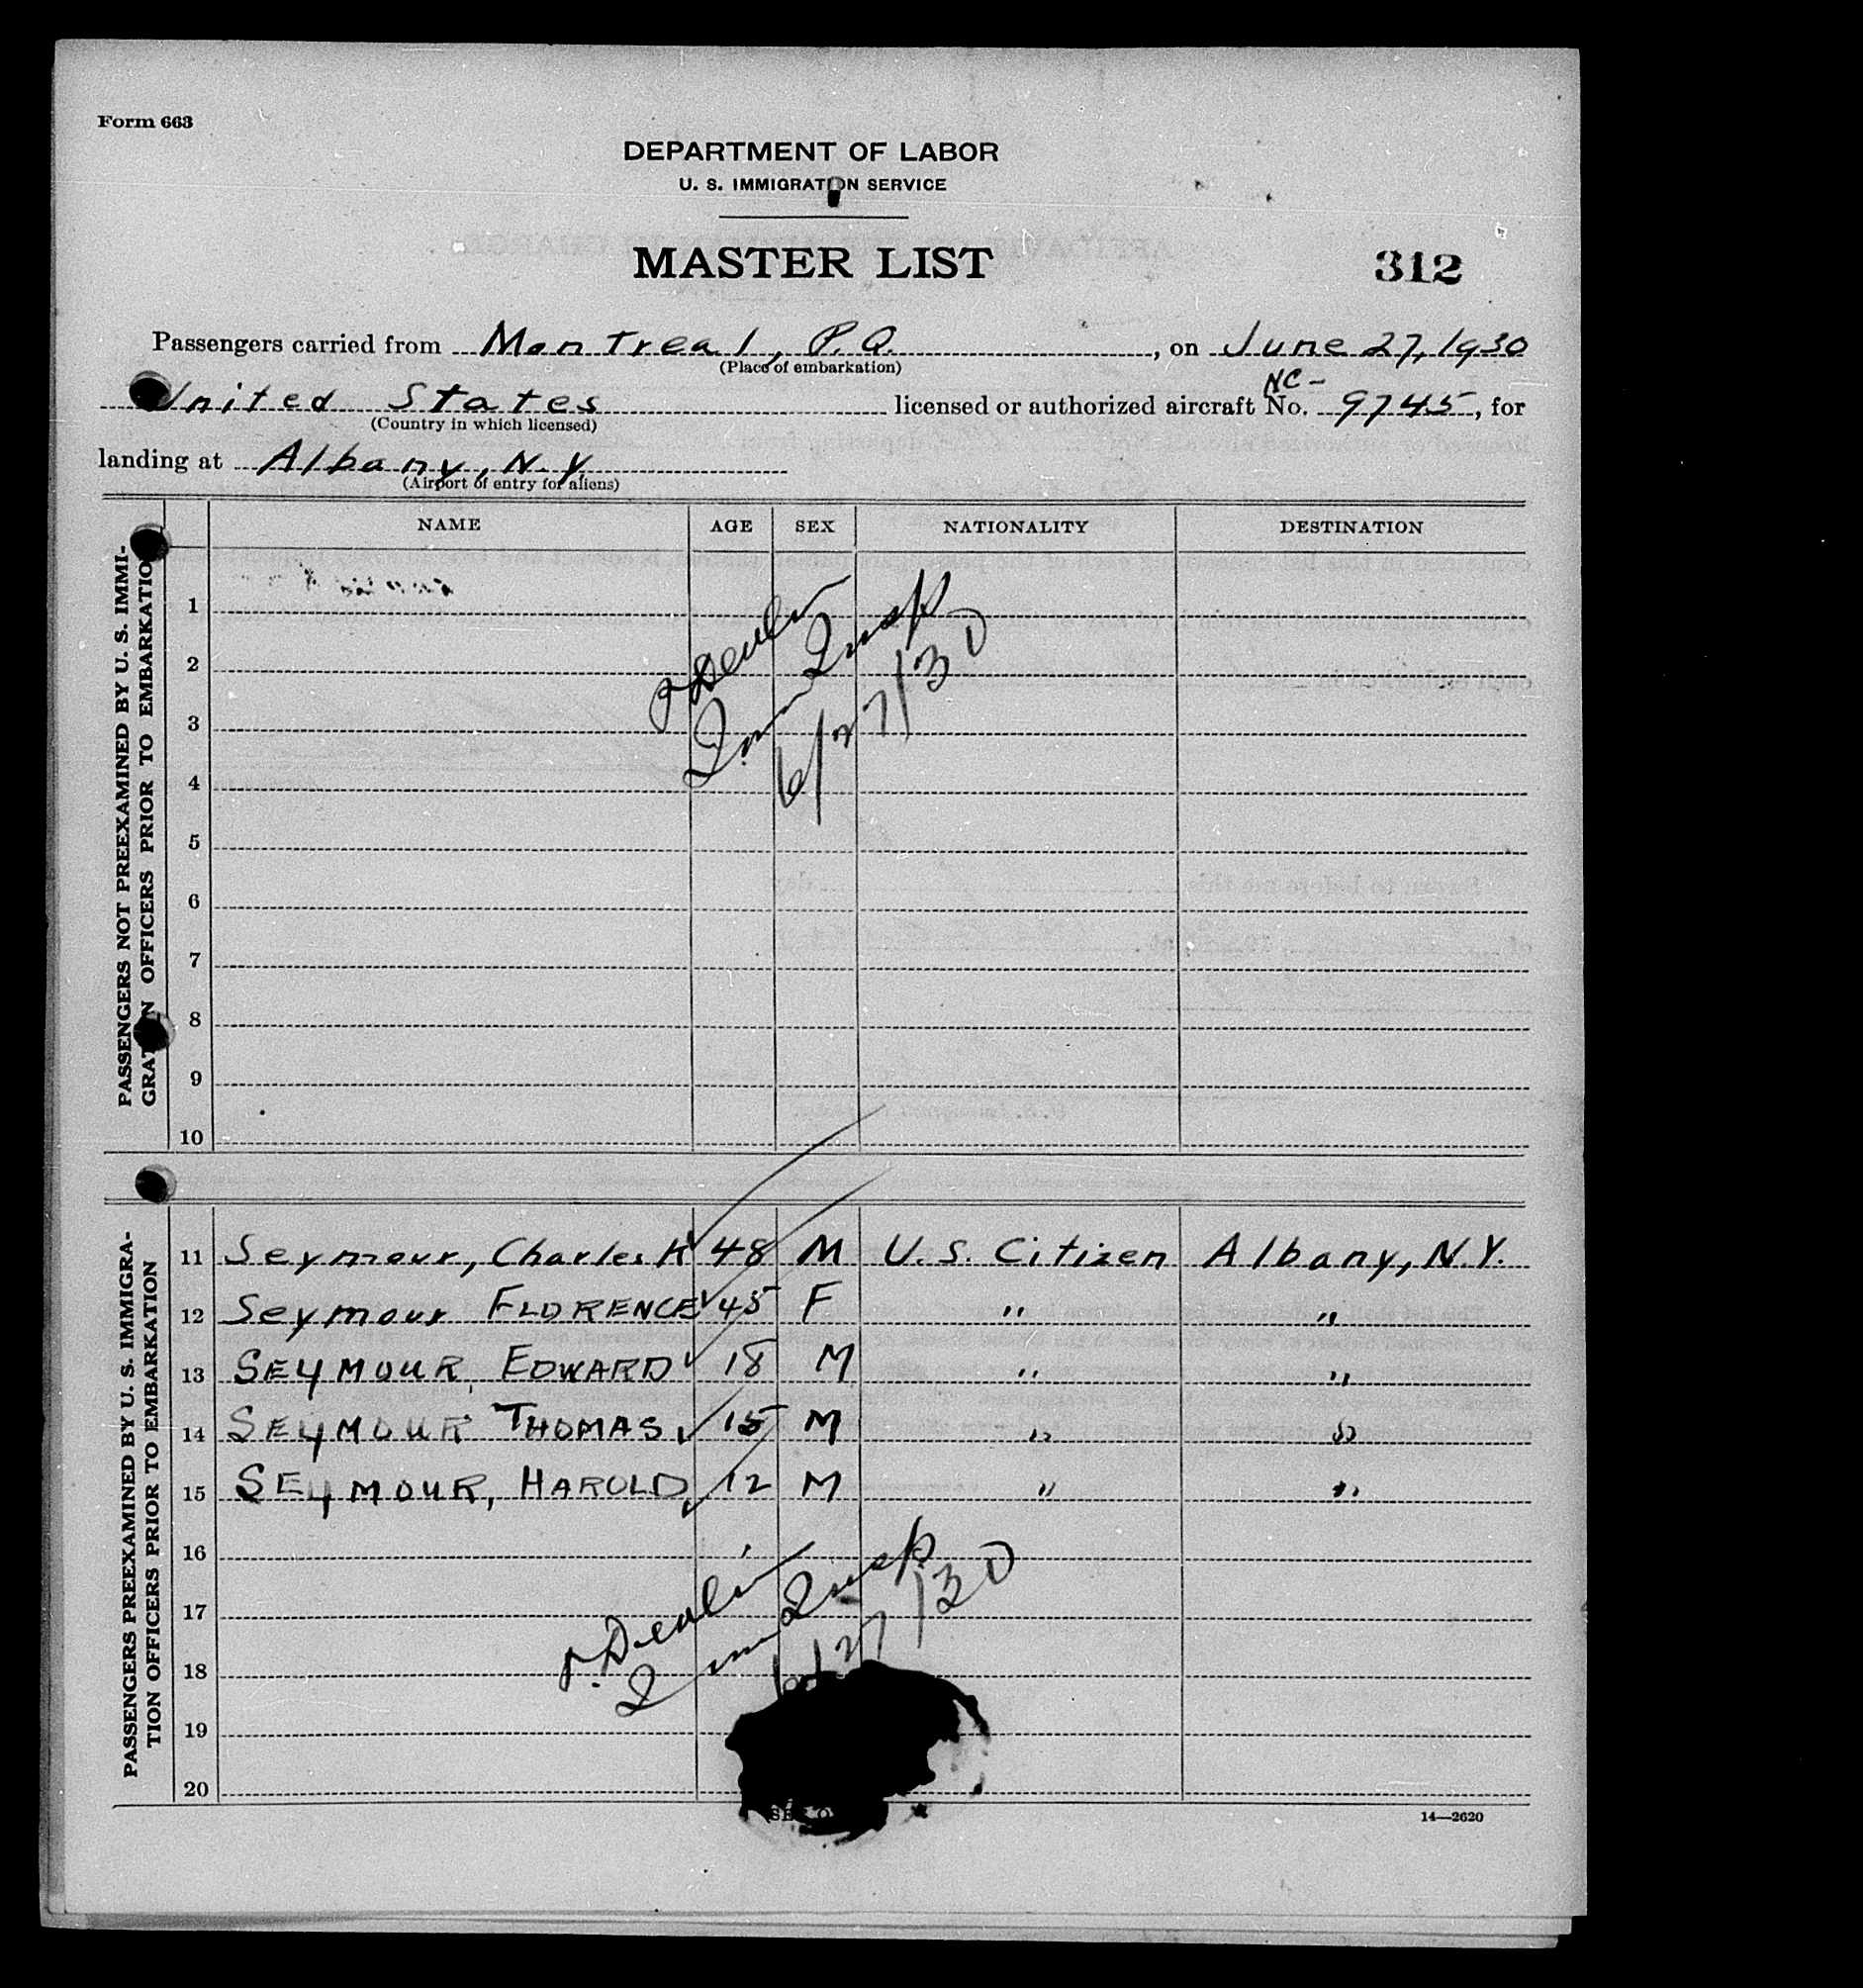 Form 663
DEPARTMENT OF LABOR
U. S. IMMIGRATION SERVICE
MASTER LIST
312
Passengers carried from Montreal, P.Q. , on June 27, 1930
(Place of embarkation)
United States licensed or authorized aircraft NC- No. 9745, for
(Country in which licensed)
landing at Albany, N.Y.
(Airport of entry for aliens)
NAME AGE SEX NATIONALITY DESTINATION
PASSENGERS NOT PREEXAMINED BY U. S. IMMI-
GRATION OFFICERS PRIOR TO EMBARKATION
1
2
3
4
5
6
7
8
9
10
Devlin
Imm Insp
6/27/30
PASSENGERS PREEXAMINED BY U. S. IMMIGRA-
TION OFFICERS PRIOR TO EMBARKATION
11 Seymour, Charles K 48 M U.S. Citizen Albany, N.Y.
12 Seymour FLORENCE 45 F " "
13 SEYMOUR, EDWARD 18 M " "
14 SEYMOUR THOMAS 15 M " "
15 SEYMOUR, HAROLD 12 M " "
16
17
18
19
20
Devlin
Imm Insp
6/27/30
14—2620